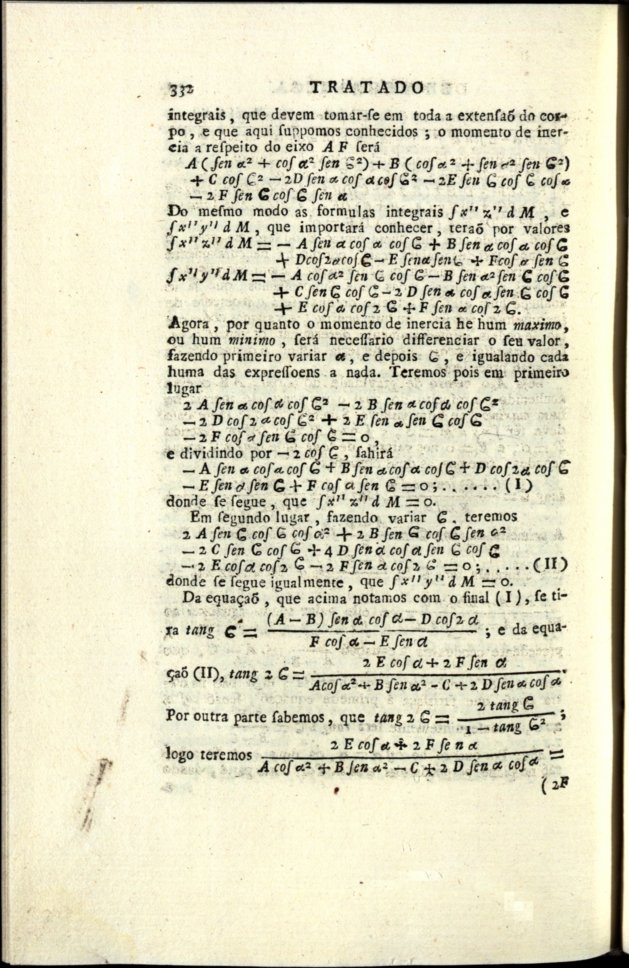 332 TRATADO
integrais, que devem tomar-ſe em toda a extenſaõ do cor-
po, e que aqui ſuppomos conhecidos; o momento de iner-
cia a reſpeito do eixo A F ſerá
A (ſen α² + coſ α² ſen ϐ²) + B (coſ α² + ſen α² ſen ϐ²)
+ C coſ ϐ² — 2D ſen α coſ α coſ ϐ² — 2E ſen ϐ coſ ϐ coſ α
— 2 F ſen ϐ coſ ϐ ſen α
Do meſmo modo as formulas integrais ſ x'' z'' d M, e
ſ x'' y'' d M, que importará conhecer, teraõ por valores
ſ x'' z'' d M = — A ſen α coſ α coſ ϐ + B ſen α coſ α coſ ϐ
+ D coſ 2 α coſ ϐ — E ſen α ſen ϐ + F coſ α ſen ϐ
ſ x'' y'' d M = — A coſ α² ſen ϐ coſ ϐ — B ſen α² ſen ϐ coſ ϐ
+ C ſen ϐ coſ ϐ — 2 D ſen α coſ α ſen ϐ coſ ϐ
+ E coſ α coſ 2 ϐ + F ſen α coſ 2 ϐ.
Agora, por quanto o momento de inercia he hum maximo,
ou hum minimo, ſerá neceſſario differenciar o ſeu valor,
fazendo primeiro variar α, e depois ϐ, e igualando cada
huma das expreſſoens a nada. Teremos pois em primeiro
lugar
2 A ſen α coſ α coſ ϐ² — 2 B ſen α coſ α coſ ϐ²
— 2 D coſ 2 α coſ ϐ² + 2 E ſen α ſen ϐ coſ ϐ
— 2 F coſ α ſen ϐ coſ ϐ = 0,
e dividindo por — 2 coſ ϐ, ſahirá
— A ſen α coſ α coſ ϐ + B ſen α coſ α coſ ϐ + D coſ 2 α coſ ϐ
— E ſen α ſen ϐ + F coſ α ſen ϐ = 0; . . . . . . (I)
donde ſe ſegue, que ſ x'' z'' d M = 0.
Em ſegundo lugar, fazendo variar ϐ. teremos
2 A ſen ϐ coſ ϐ coſ α² + 2 B ſen ϐ coſ ϐ ſen α²
— 2 C ſen ϐ coſ ϐ + 4 D ſen α coſ α ſen ϐ coſ ϐ
— 2 E coſ α coſ 2 ϐ — 2 F ſen α coſ 2 ϐ = 0; . . . . . (II)
donde ſe ſegue igualmente, que ſ x'' y'' d M = 0.
Da equaçaõ, que acima notamos com o ſinal (I), ſe ti-
(A — B) ſen α coſ α — D coſ 2 α
ra tang ϐ = ; e da equa-
F coſ α — E ſen α
2 E coſ α + 2 F ſen α
çaõ (II), tang 2 ϐ = .
A coſ α² + B ſen α² - C + 2 D ſen α coſ α
2 tang ϐ
Por outra parte ſabemos, que tang 2 ϐ = ;
1 — tang ϐ²
2 E coſ α + 2 F ſen α
logo teremos =
A coſ α² + B ſen α² — C + 2 D ſen α coſ α
(2F